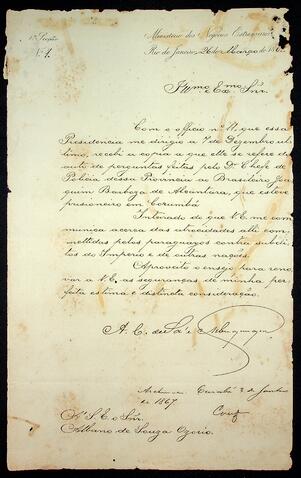 1ª Secção
N. 1.
Ministerio dos Negocios Estrangeiros
Rio de Janeiro, 26 de Março de 186
Illmo. e Exmo. Snr.
Com o officio n. 11, que essa
Presidencia me dirigio a 7 de Dezembro ul-
timo, recebi a copia a que elle se refere do
auto de perguntas feitas pelo Dr. Chefe de
Policia dessa Provincia ao Brasileiro Joa-
quim Barboza de Alcantara, que esteve
prisioneiro em Corumbá.
Inteirado do que V. E. me com-
munica acerca das atrocidades alli com-
mettidas pelos paraguayos contra subdi-
tos do Imperio e de outras nações.
Aproveito o ensejo para reno-
var a V. E. as seguranças de minha per-
feita estima e distincta consideração.
A. C. de Sá e Albuquerque
Archive-se. Cuiabá 2 de
de 1867.
A S. E. o Snr.
Albano de Souza Ozorio.